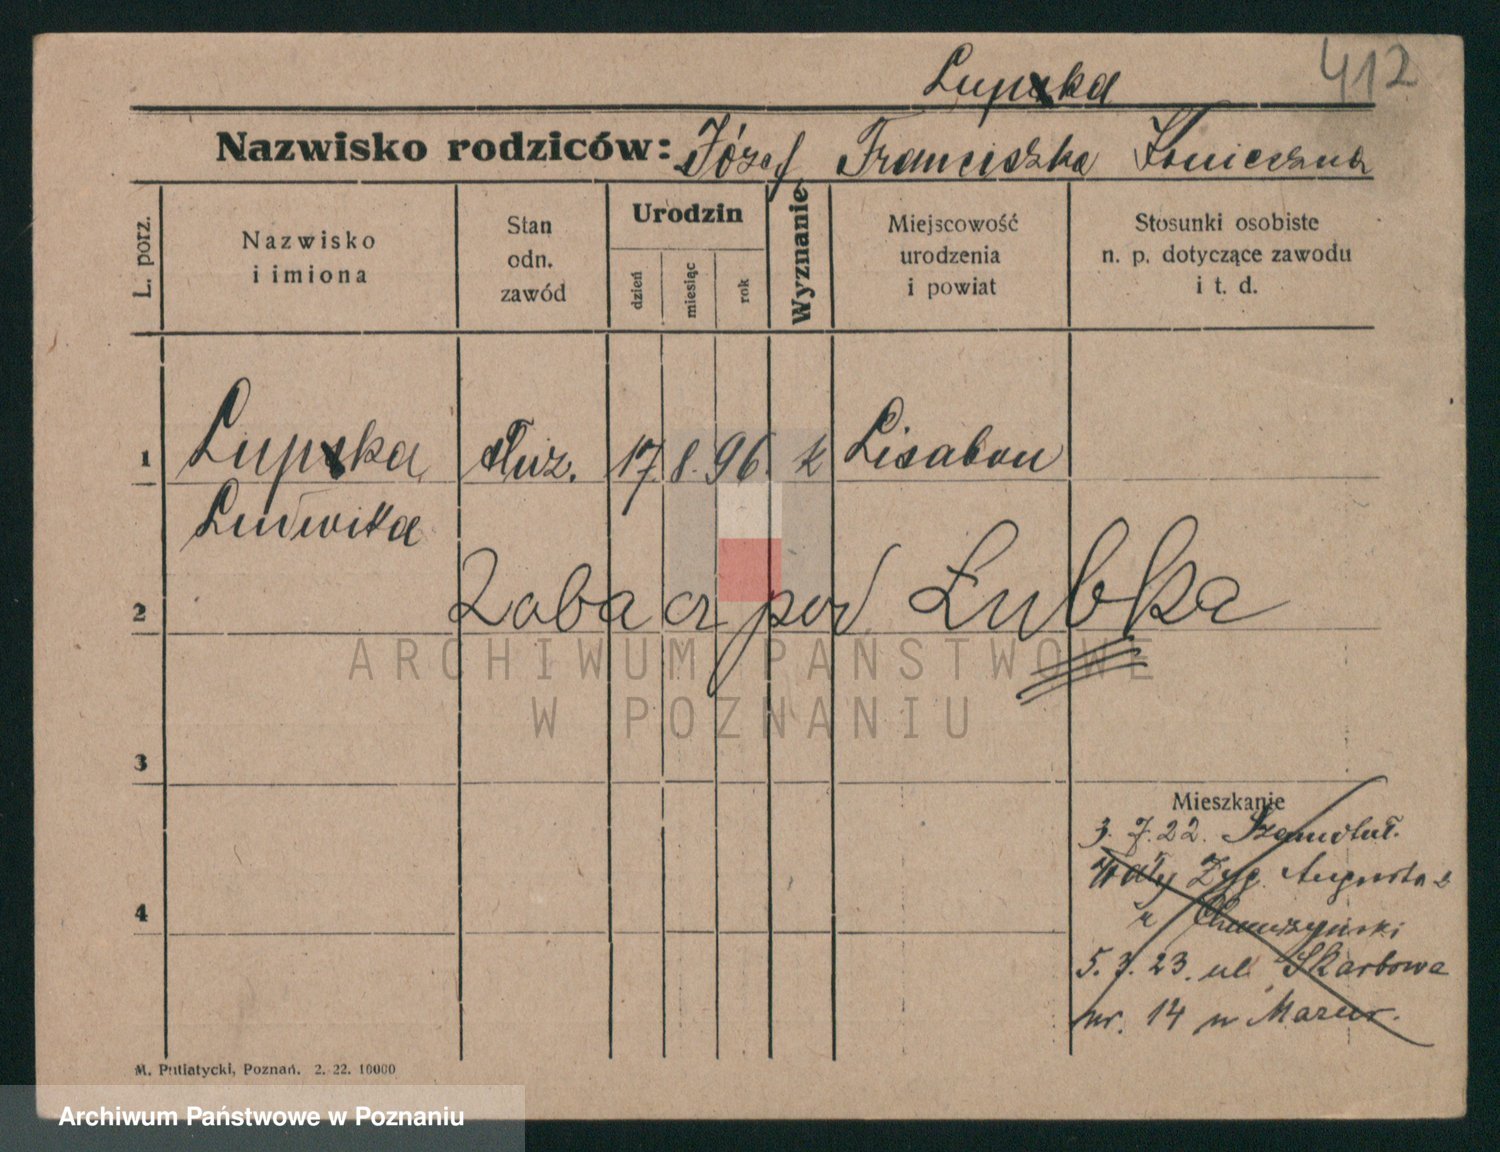 412
Lupska
Nazwisko rodziców: Józef Franciszka Konieczna
L. porz.
Nazwisko
i imiona
Stan
odn.
zawód
Urodzin
dzień
miesiąc
rok
Wyznanie
Miejscowość
urodzenia
i powiat
Stosunki osobiste
n. p. dotyczące zawodu
i t. d.
1 Lupska służ. 17. 8. 96. k Lisabon
Ludwika
2 Zobacz pod Łubka
ARCHIWUM PAŃSTWOWE
W POZNANIU
3
Mieszkanie
3. 7. 22. Szamotuł.
Wały Zyg. Augusta 2
4
5. 3. 23. ul. Skarbowa
nr. 14 u Mazur.
M. Putiatycki, Poznań. 2. 22. 10000
Archiwum Państwowe w Poznaniu